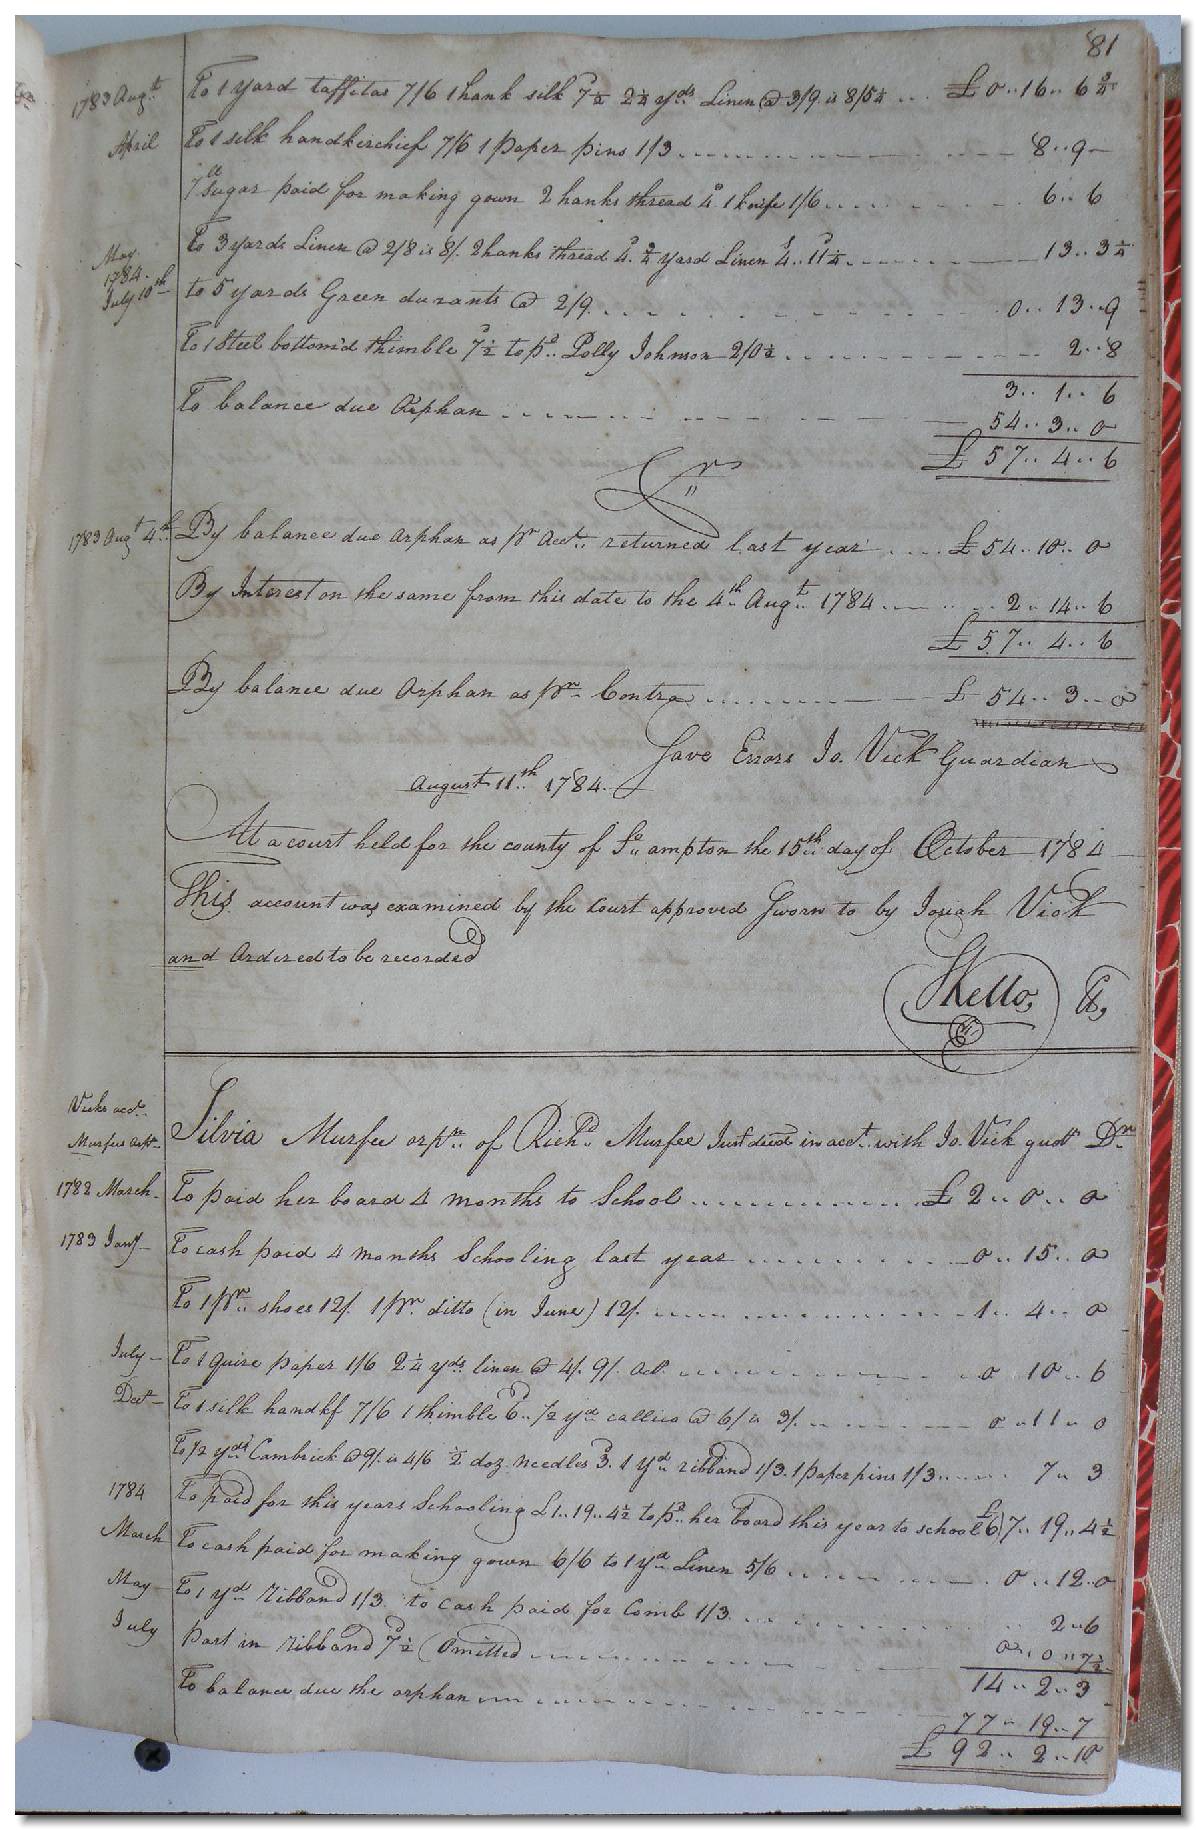 81
1783 Augt. To 1 yard taffitas 7/6 1 hank silk 7½d 2¼ yds. Linen @ 3/9 is 8/5¼ ... £ 0..16..6¾
April To 1 silk handkerchief 7/6 1 paper pins 1/3 ... 8..9
7 lb Sugar paid for making gown 2 hanks thread 4d 1 knife 1/6 ... 6..6
May To 3 yards Linen @ 2/8 is 8/. 2 hanks thread 4d. yard Linen 4s..11¼d ... 13..3¼
1784
July 10th to 5 yards Green durants @ 2/9 ... 0..13..9
To 1 Steel bottom'd thimble 7½d to pd.. Polly Johnson 2/0½ ... 2..8
3..1..6
To balance due Orphan ... 54..3..0
£ 57..4..6
Cr
1783 Augt 4th By balance due orphan as pr Acct.. returned last year .... £ 54..10..0
By Interest on the same from this date to the 4th.. Augt.. 1784 ... 2..14..6
£ 57..4..6
By balance due Orphan as pr. Contra ... £ 54..3..0
Save Errors Jo. Vick Guardian
August 11th.. 1784.
At a court held for the county of So..ampton the 15th.. day of October 1784
This account was examined by the Court approved Sworn to by Josiah Vick
and Ordered to be recorded
SKello, Ck,
Vicks acct.
Murfees orpt.
Silvia Murfee orpn. of Richd. Murfee Junr deced in acct. with Jo. Vick gudn Dr.
1782 March To paid her board 4 months to School ... £ 2..0..0
1783 Jany To cash paid 4 months Schooling last year ... 0..15..0
To 1 pr.. shoes 12/. 1 pr. ditto (in June) 12/. ... 1..4..0
July To 1 quire paper 1/6 2¼ yds. linen @ 4/. 9/. ... 0 10..6
Dect To 1 silk handkf 7/6 1 thimble 6d.. ½ yd. callico @ 6/ is 3/. ... 0..11..0
To ½ yds Cambrick @ 9/. is 4/6 ½ doz needles 3d. 1 yd. ribband 1/3. 1 paper pins 1/3 ... 7..3
1784 To paid for this years Schooling £1..19..4½ to pd.. her board this year to school £6) 7..19..4½
March To cash paid for making gown 6/6 to 1 yd.. Linen 5/6 ... 0..12..0
May To 1 yd. ribband 1/3. to cash paid for Comb 1/3 ... 2..6
July part in ribband 7½d (Omitted ... 0..0..7½
14..2..3
To balance due the orphan ... 77..19..7
£ 92..2..10